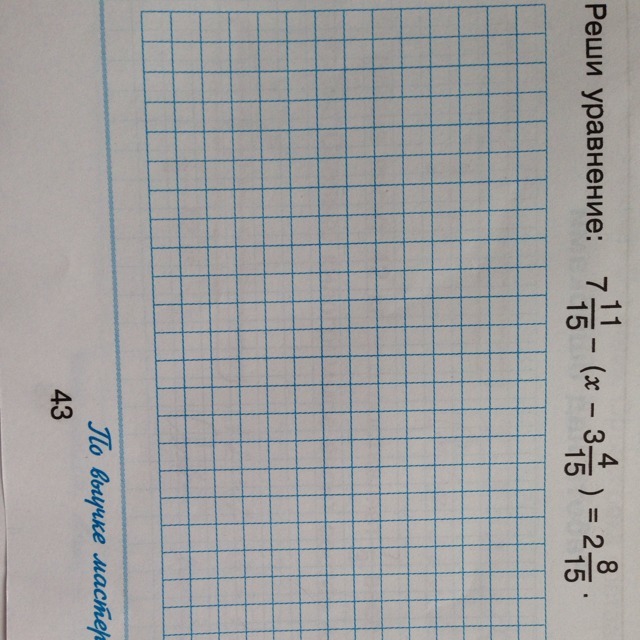 Реши уравнение: 7 11/15 − (x − 3 4/15) = 2 8/15.
По выучке мастер
43